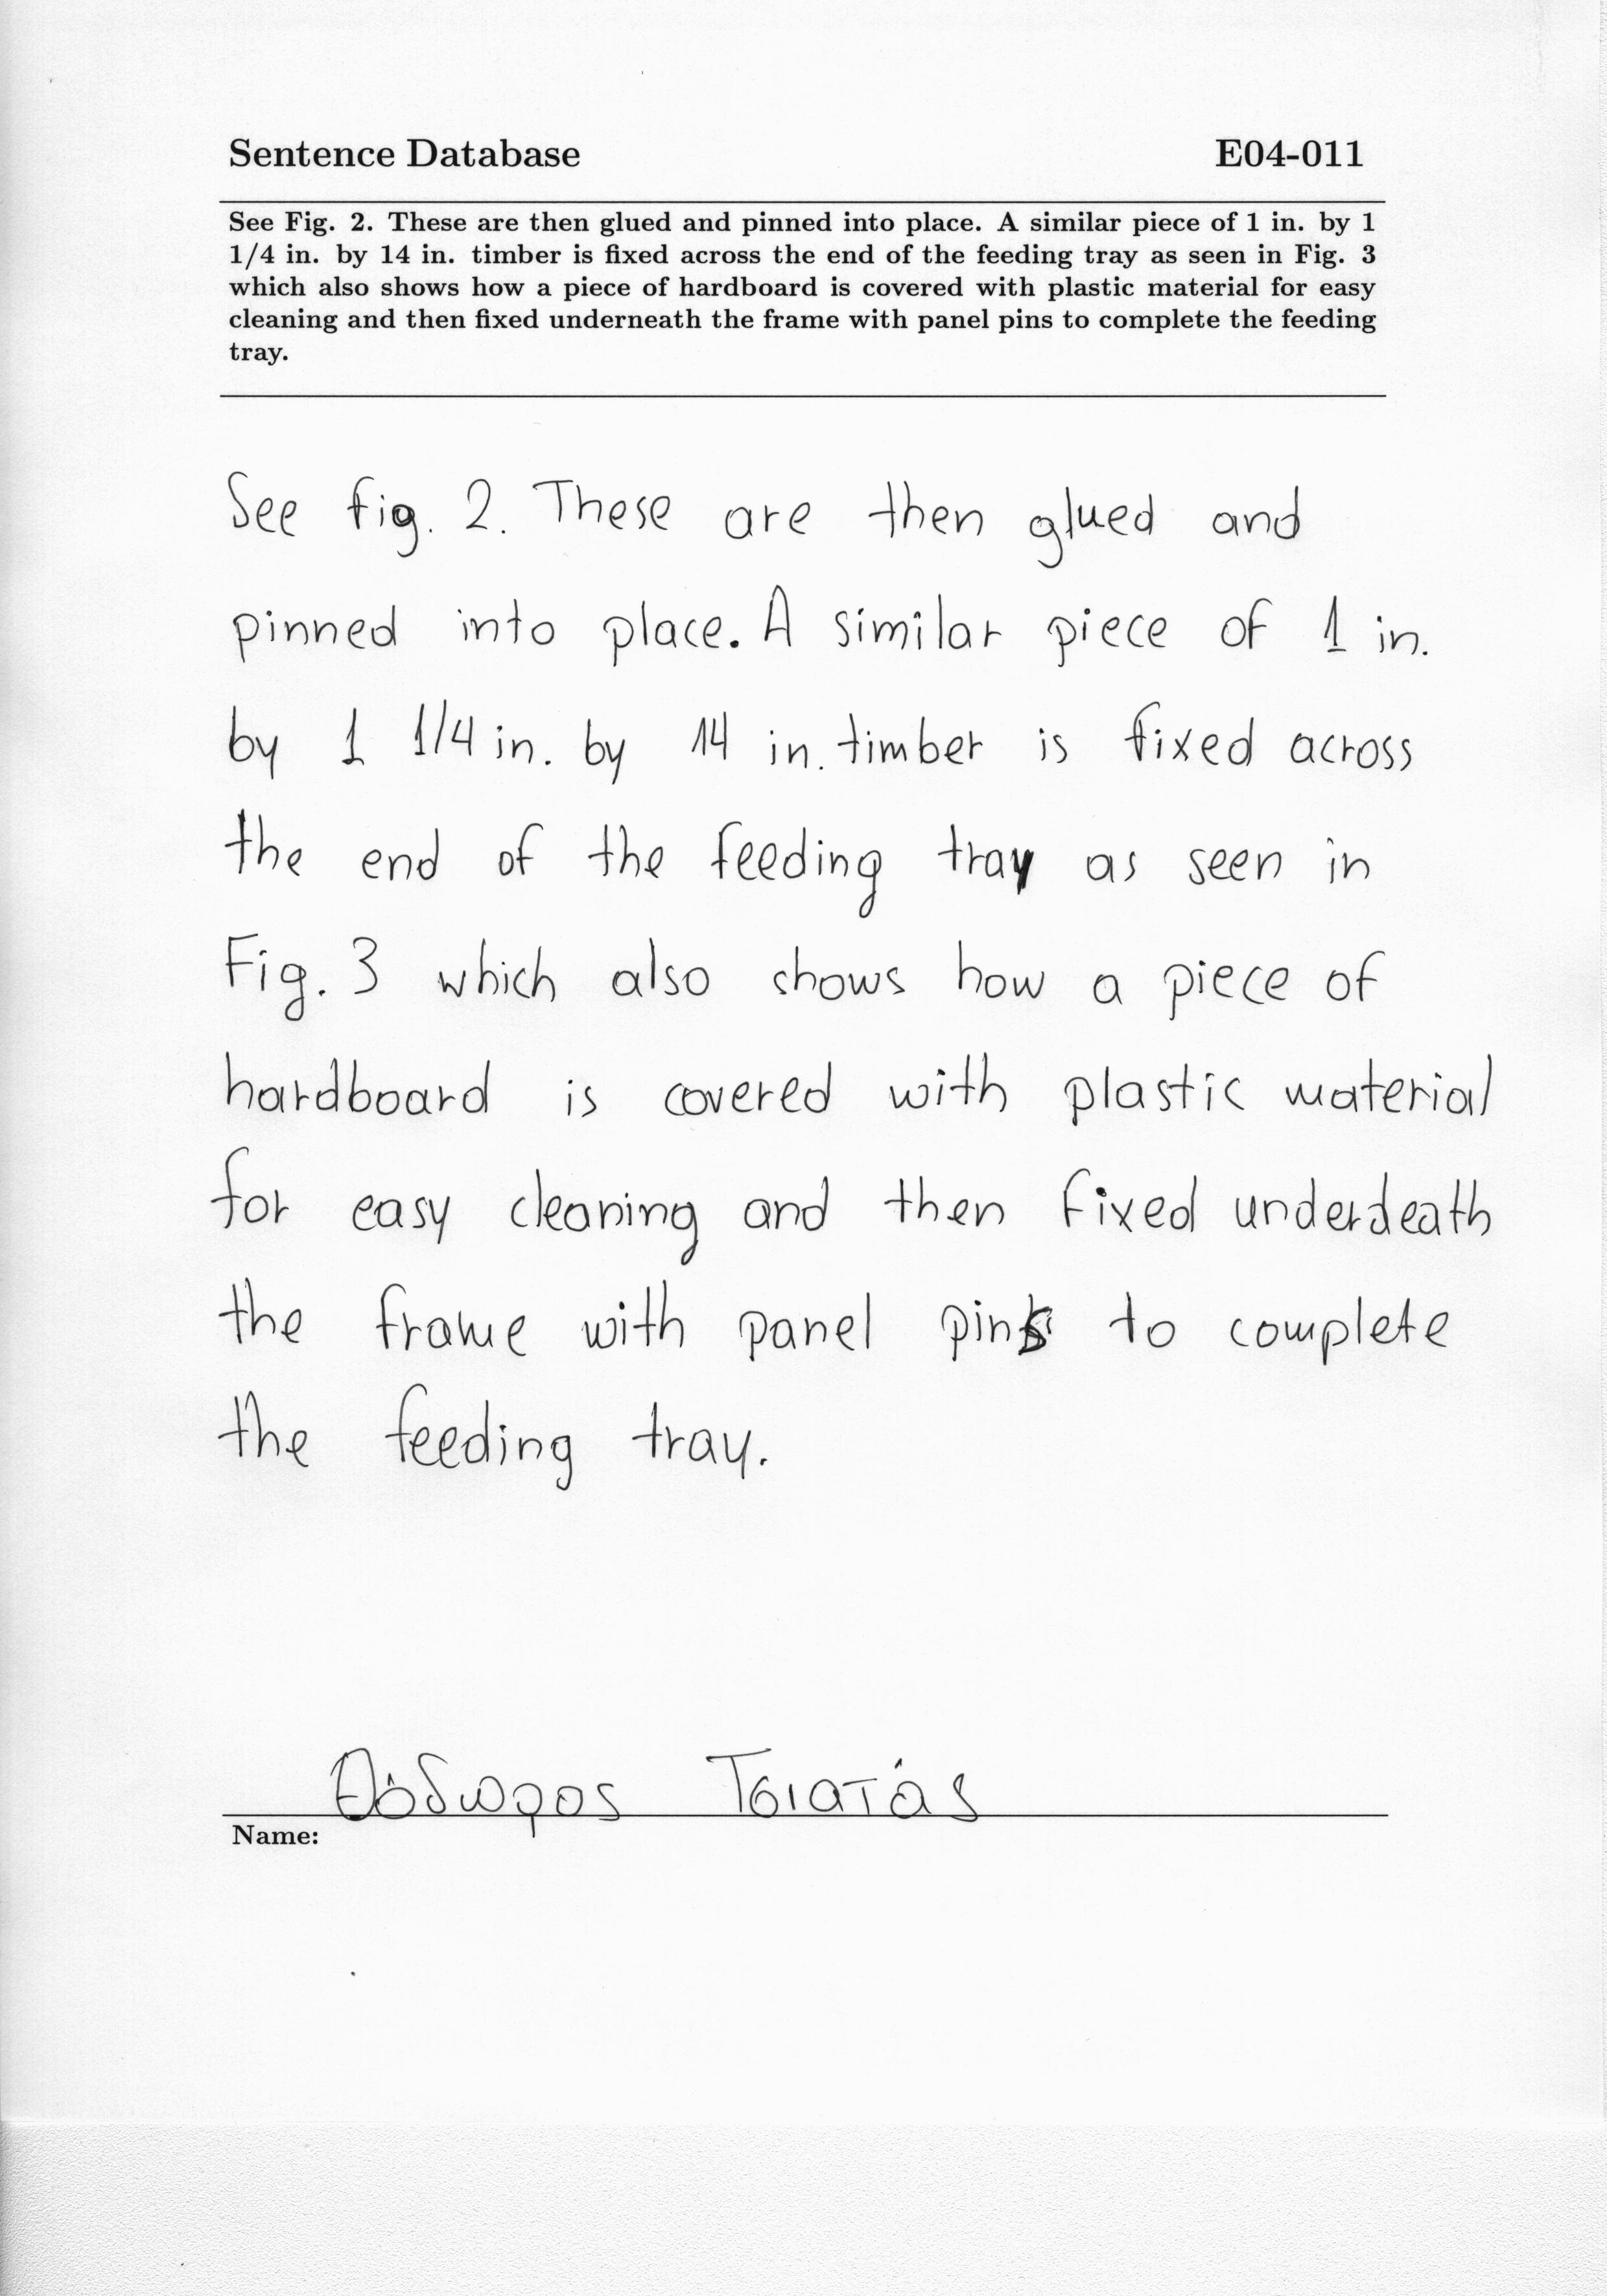 Sentence Database E04-011
See Fig. 2. These are then glued and pinned into place. A similar piece of 1 in. by 1
1/4 in. by 14 in. timber is fixed across the end of the feeding tray as seen in Fig. 3
which also shows how a piece of hardboard is covered with plastic material for easy
cleaning and then fixed underneath the frame with panel pins to complete the feeding
tray.
See fig. 2. These are then glued and
pinned into place. A similar piece of 1 in.
by 1 1/4 in. by 14 in. timber is fixed across
the end of the feeding tray as seen in
Fig. 3 which also shows how a piece of
hardboard is covered with plastic material
for easy cleaning and then fixed underdeath
the frame with panel pins to complete
the feeding tray.
Θόδωρος Τσιατάς
Name: